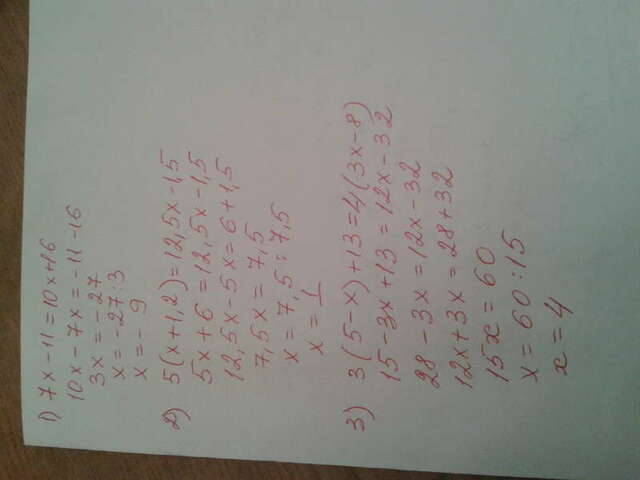 1) 7x-11=10x+16
10x-7x=-11-16
3x=-27
x=-27:3
x=-9
2) 5(x+1,2)=12,5x-1,5
5x+6=12,5x-1,5
12,5x-5x=6+1,5
7,5x=7,5
x=7,5:7,5
x=1
3) 3(5-x)+13=4(3x-8)
15-3x+13=12x-32
28-3x=12x-32
12x+3x=28+32
15x=60
x=60:15
x=4